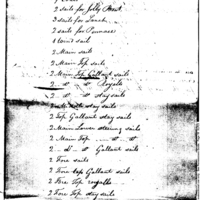 2 sails for Jolly Boat
3 sails for Launch
2 sails for Pinnace
1 wind sail
2 Main sails
2 Main Top sails
2 Main Top Gallant sails
2 " " Royals
2 " " stay sails
stay sails
2 Top Gallant stay sails
2 Main Lower steering sails
2 Main Top
2 - d° - d° Gallant sails
2 Fore sails
2 Fore top Gallant sails
2 Fore Top royalls
2 Fore Top stay sails